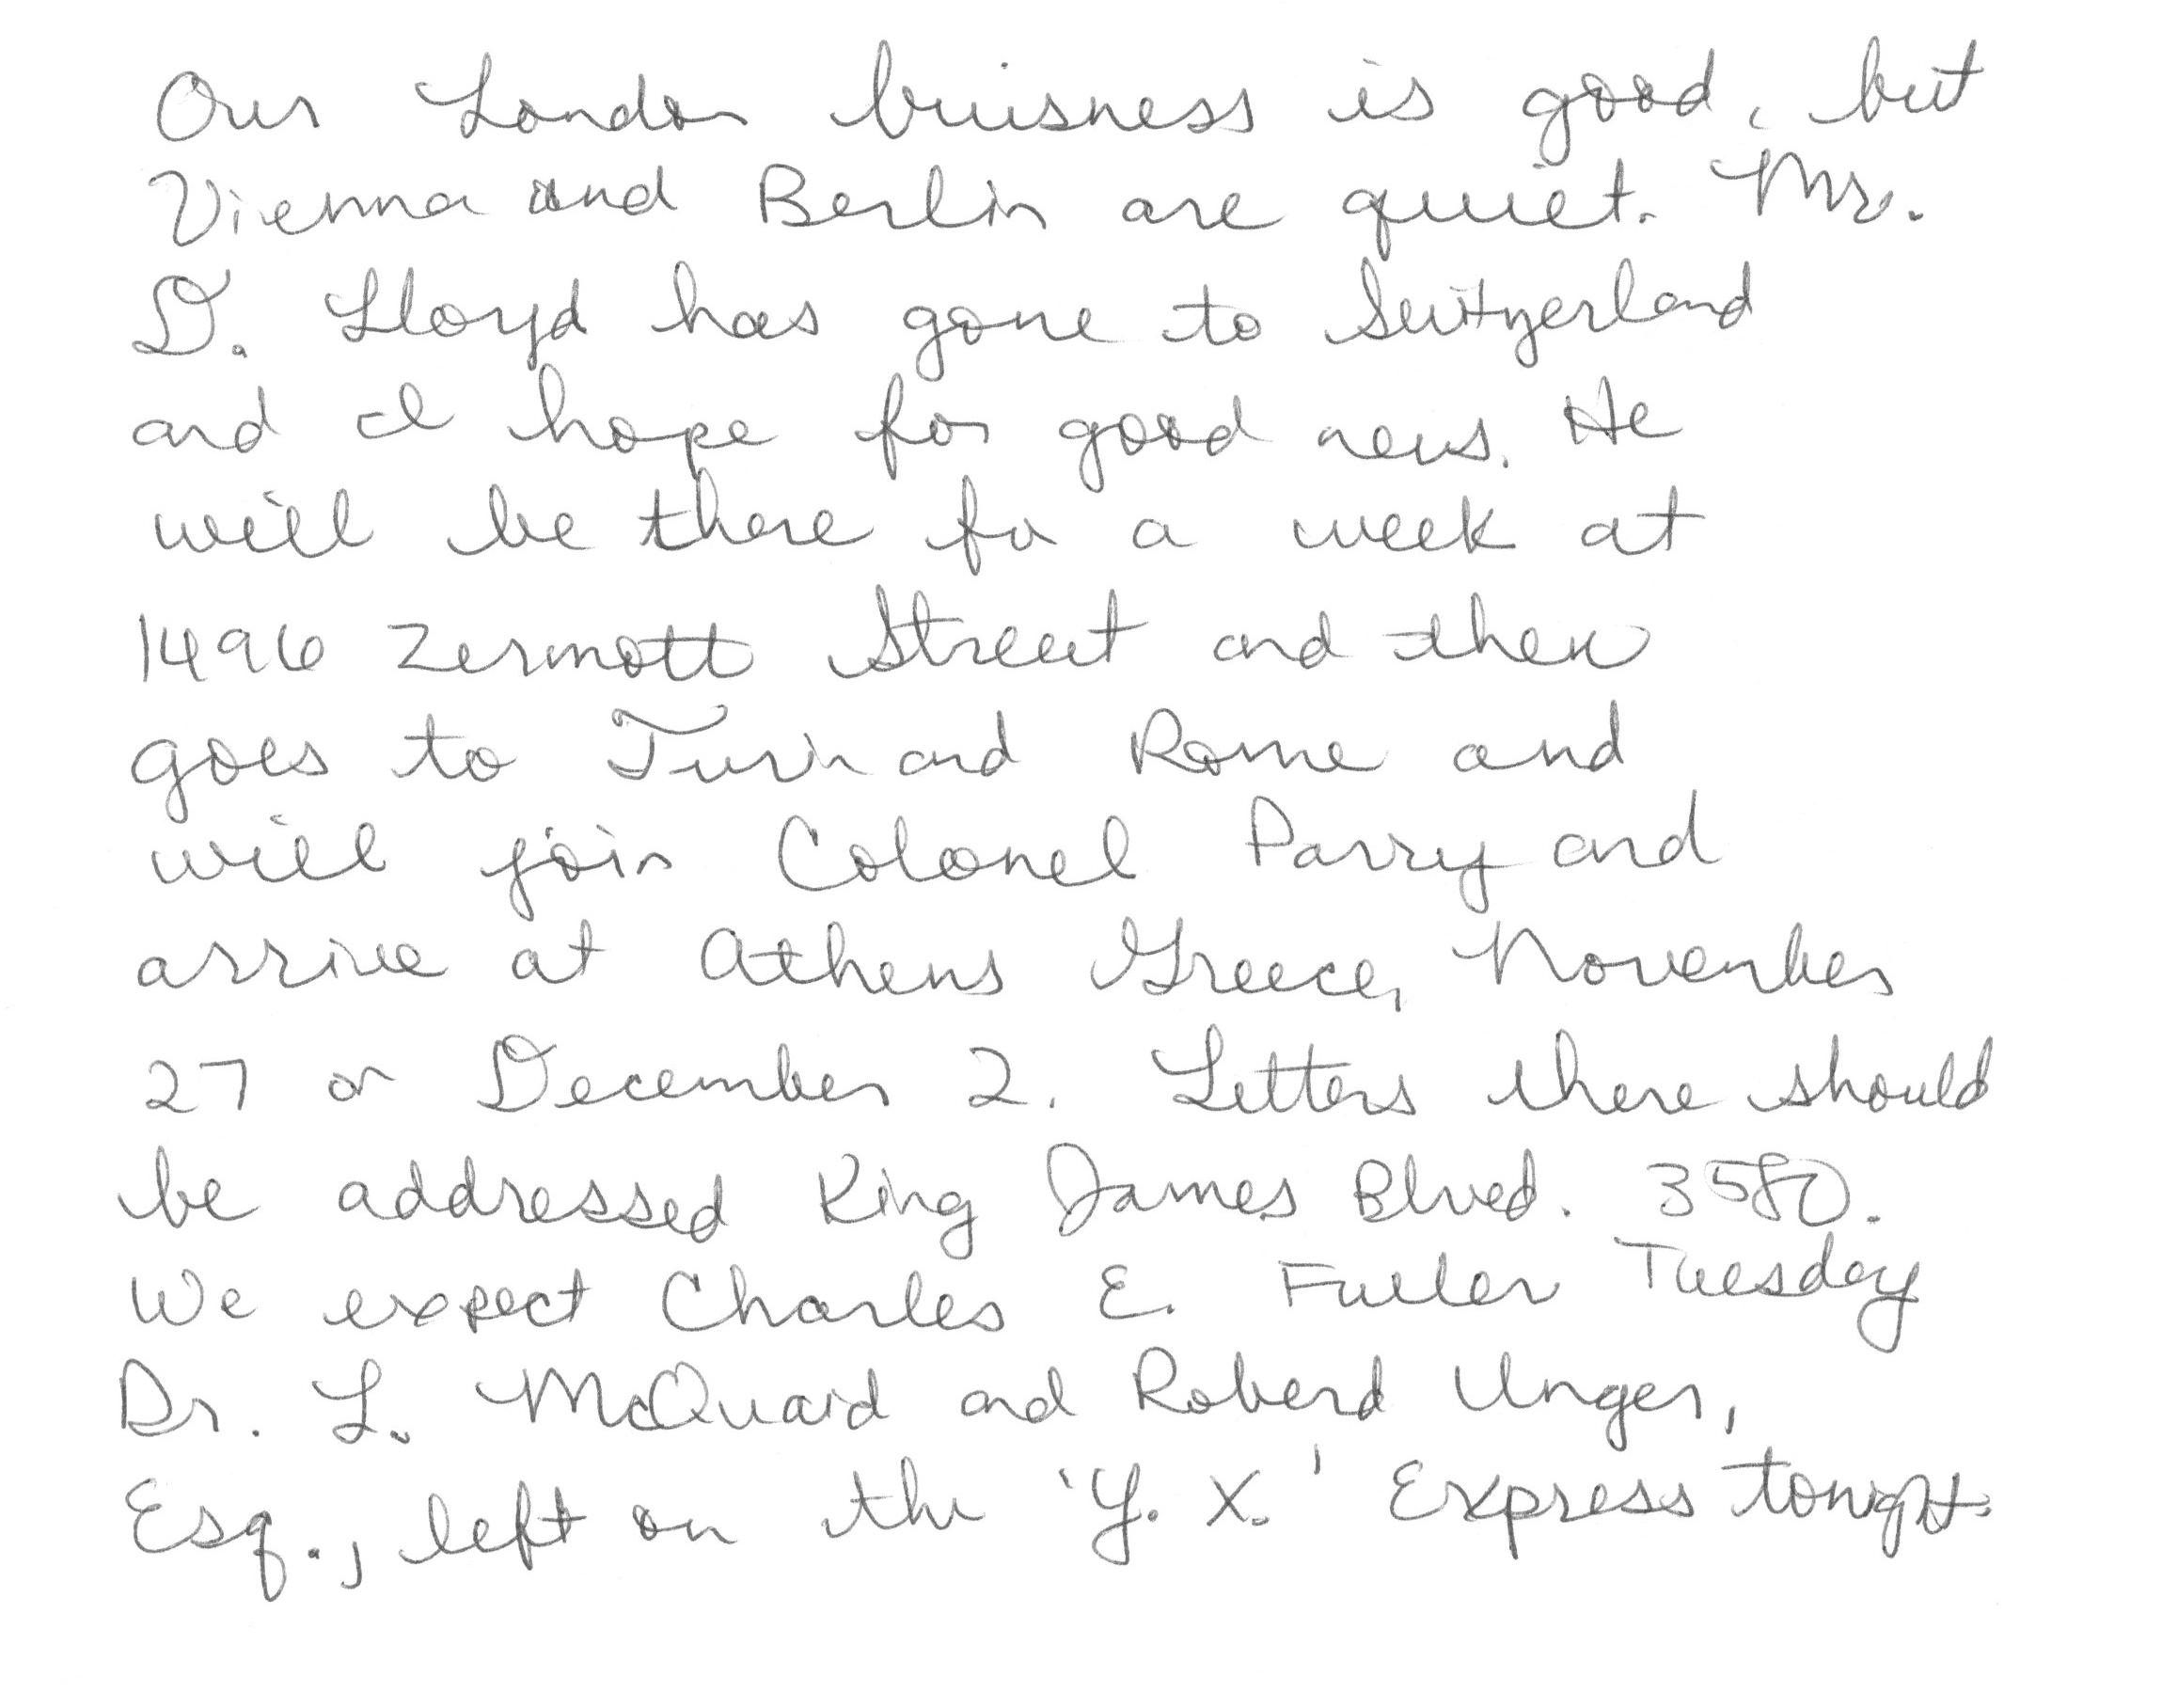 Our London buisness is good, but
Vienna and Berlin are quiet. Mr.
D. Lloyd has gone to Switzerland
and I hope for good news. He
will be there for a week at
1496 Zermott Street and then
goes to Turin and Rome and
will join Colonel Parry and
arrive at Athens Greece, November
27 or December 2. Letters there should
be addressed King James Blved. 3580.
We expect Charles E. Fuller Tuesday
Dr. L. McQuaid and Roberd Unger,
Esq., left on the 'Y. X.' Express tonight.